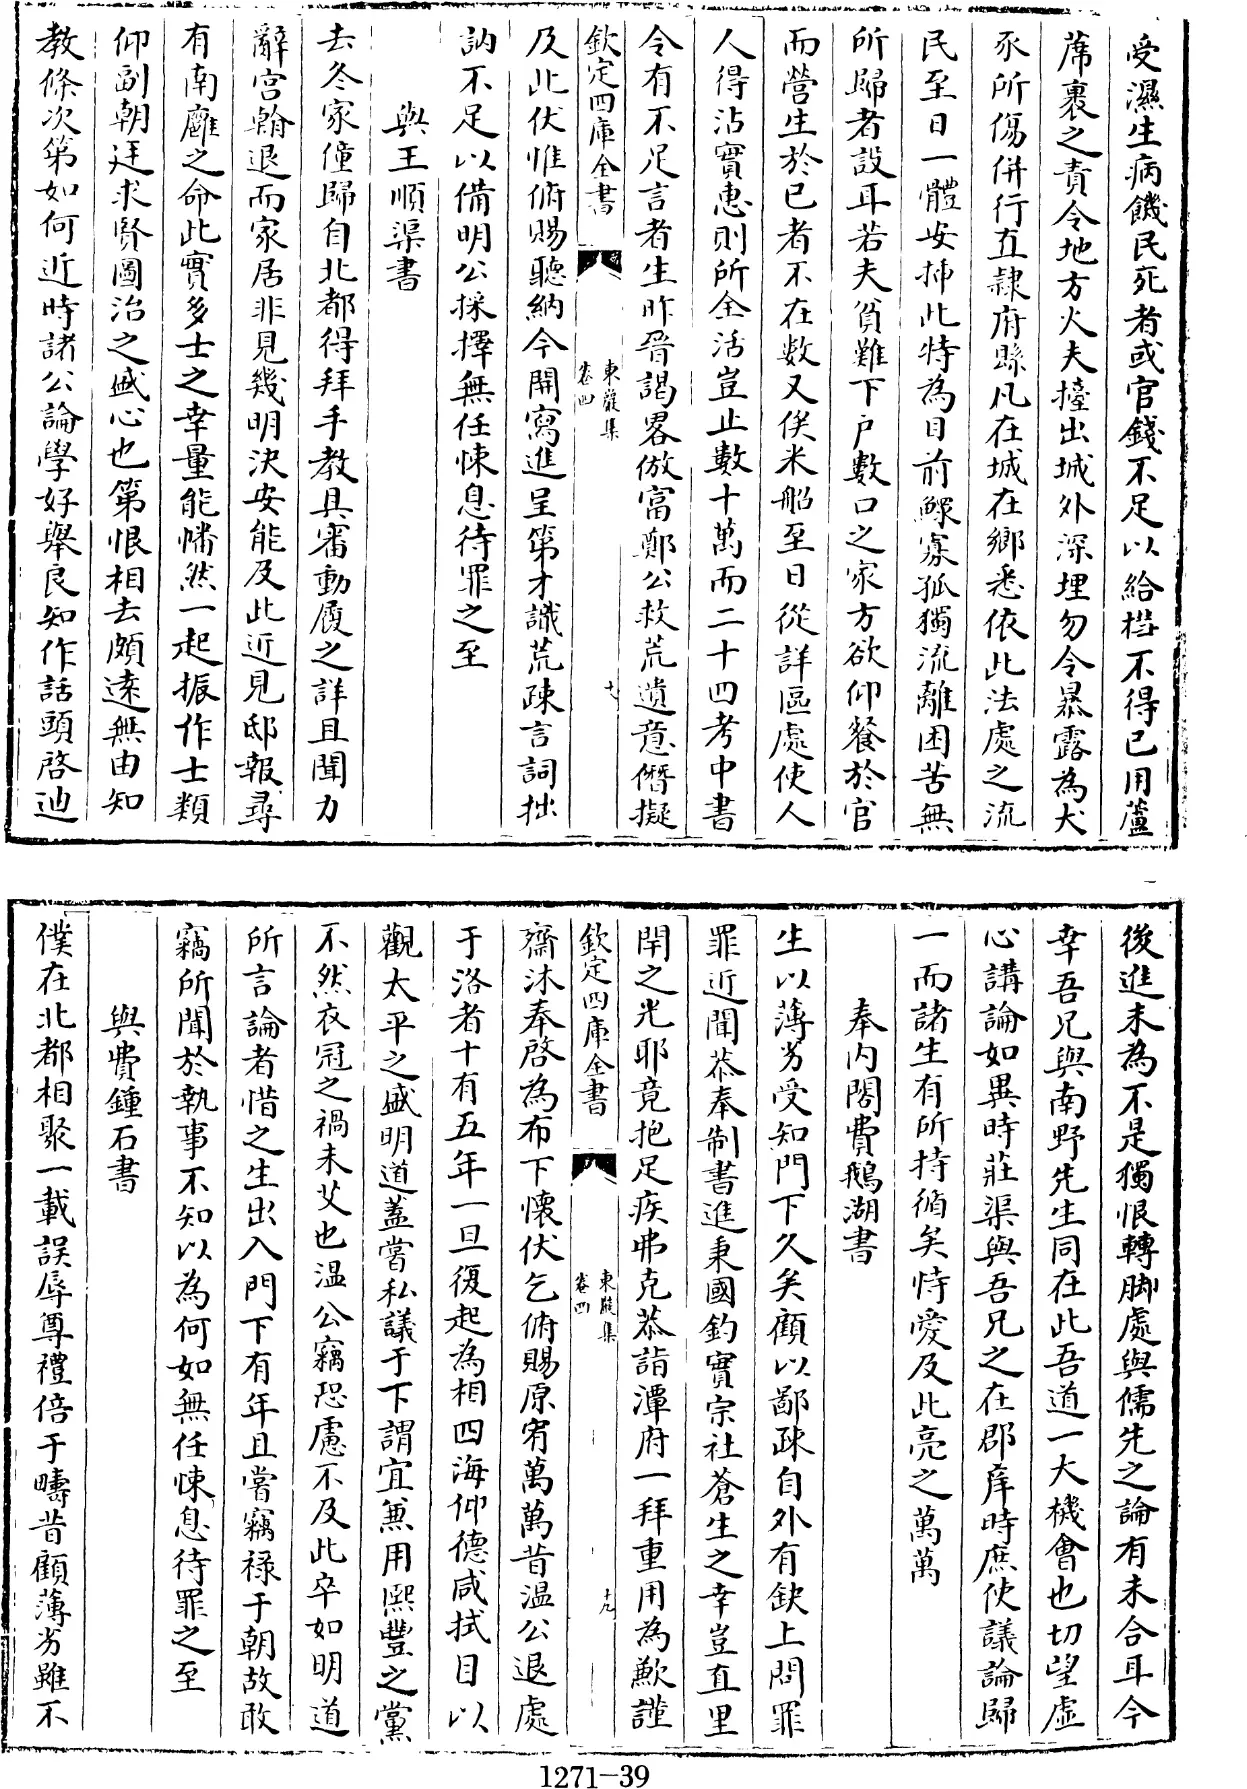 受濕生病饑民死者或官錢不足以給槥不得已用蘆
蓆裹之責令地方火夫擡出城外深埋勿令暴露為犬
豕所傷併行直隸府縣凡在城在鄉悉依此法處之流
民至日一體安揷此特為目前鰥寡孤獨流離困苦無
所歸者設耳若夫貧難下户數口之家方欲仰餐於官
而營生於已者不在數又俟米船至日從詳區處使人
人得沾實惠則所全活豈止數十萬而二十四考中書
令有不足言者生昨晉謁畧倣富鄭公救荒遺意僭擬
欽定四庫全書
東巖集
卷四
十八
及此伏惟俯賜聽納今開寫進呈第才識荒疎言詞拙
訥不足以備明公採擇無任悚息待罪之至
與王順渠書
去冬家僮歸自北都得拜手教具審動履之詳且聞力
辭宫翰退而家居非見幾明決安能及此近見邸報尋
有南雝之命此實多士之幸量能幡然一起振作士類
仰副朝廷求賢圖治之盛心也第恨相去頗逺無由知
教條次第如何近時諸公論學好舉良知作話頭啓廸
後進未為不是獨恨轉脚處與儒先之論有未合耳今
幸吾兄與南野先生同在此吾道一大機會也切望虛
心講論如異時莊渠與吾兄之在郡庠時庶使議論歸
一而諸生有所持循矣恃愛及此亮之萬萬
奉内閣費鵝湖書
生以薄劣受知門下久矣顧以鄙踈自外有缺上問罪
罪近聞恭奉制書進秉國鈞實宗社蒼生之幸豈直里
閈之光耶竟抱足疾弗克恭詣潭府一拜重用為歉謹
欽定四庫全書
東巖集
卷四
十九
齋沐奉啓為布下懷伏乞俯賜原宥萬萬昔温公退處
于洛者十有五年一旦復起為相四海仰德咸拭目以
觀太平之盛明道蓋嘗私議于下謂宜兼用熙豐之黨
不然衣冠之禍未艾也温公竊恐慮不及此卒如明道
所言論者惜之生出入門下有年且嘗竊禄于朝故敢
竊所聞於執事不知以為何如無任悚息待罪之至
與費鍾石書
僕在北都相聚一載誤辱尊禮倍于疇昔顧薄劣雖不
1271-39